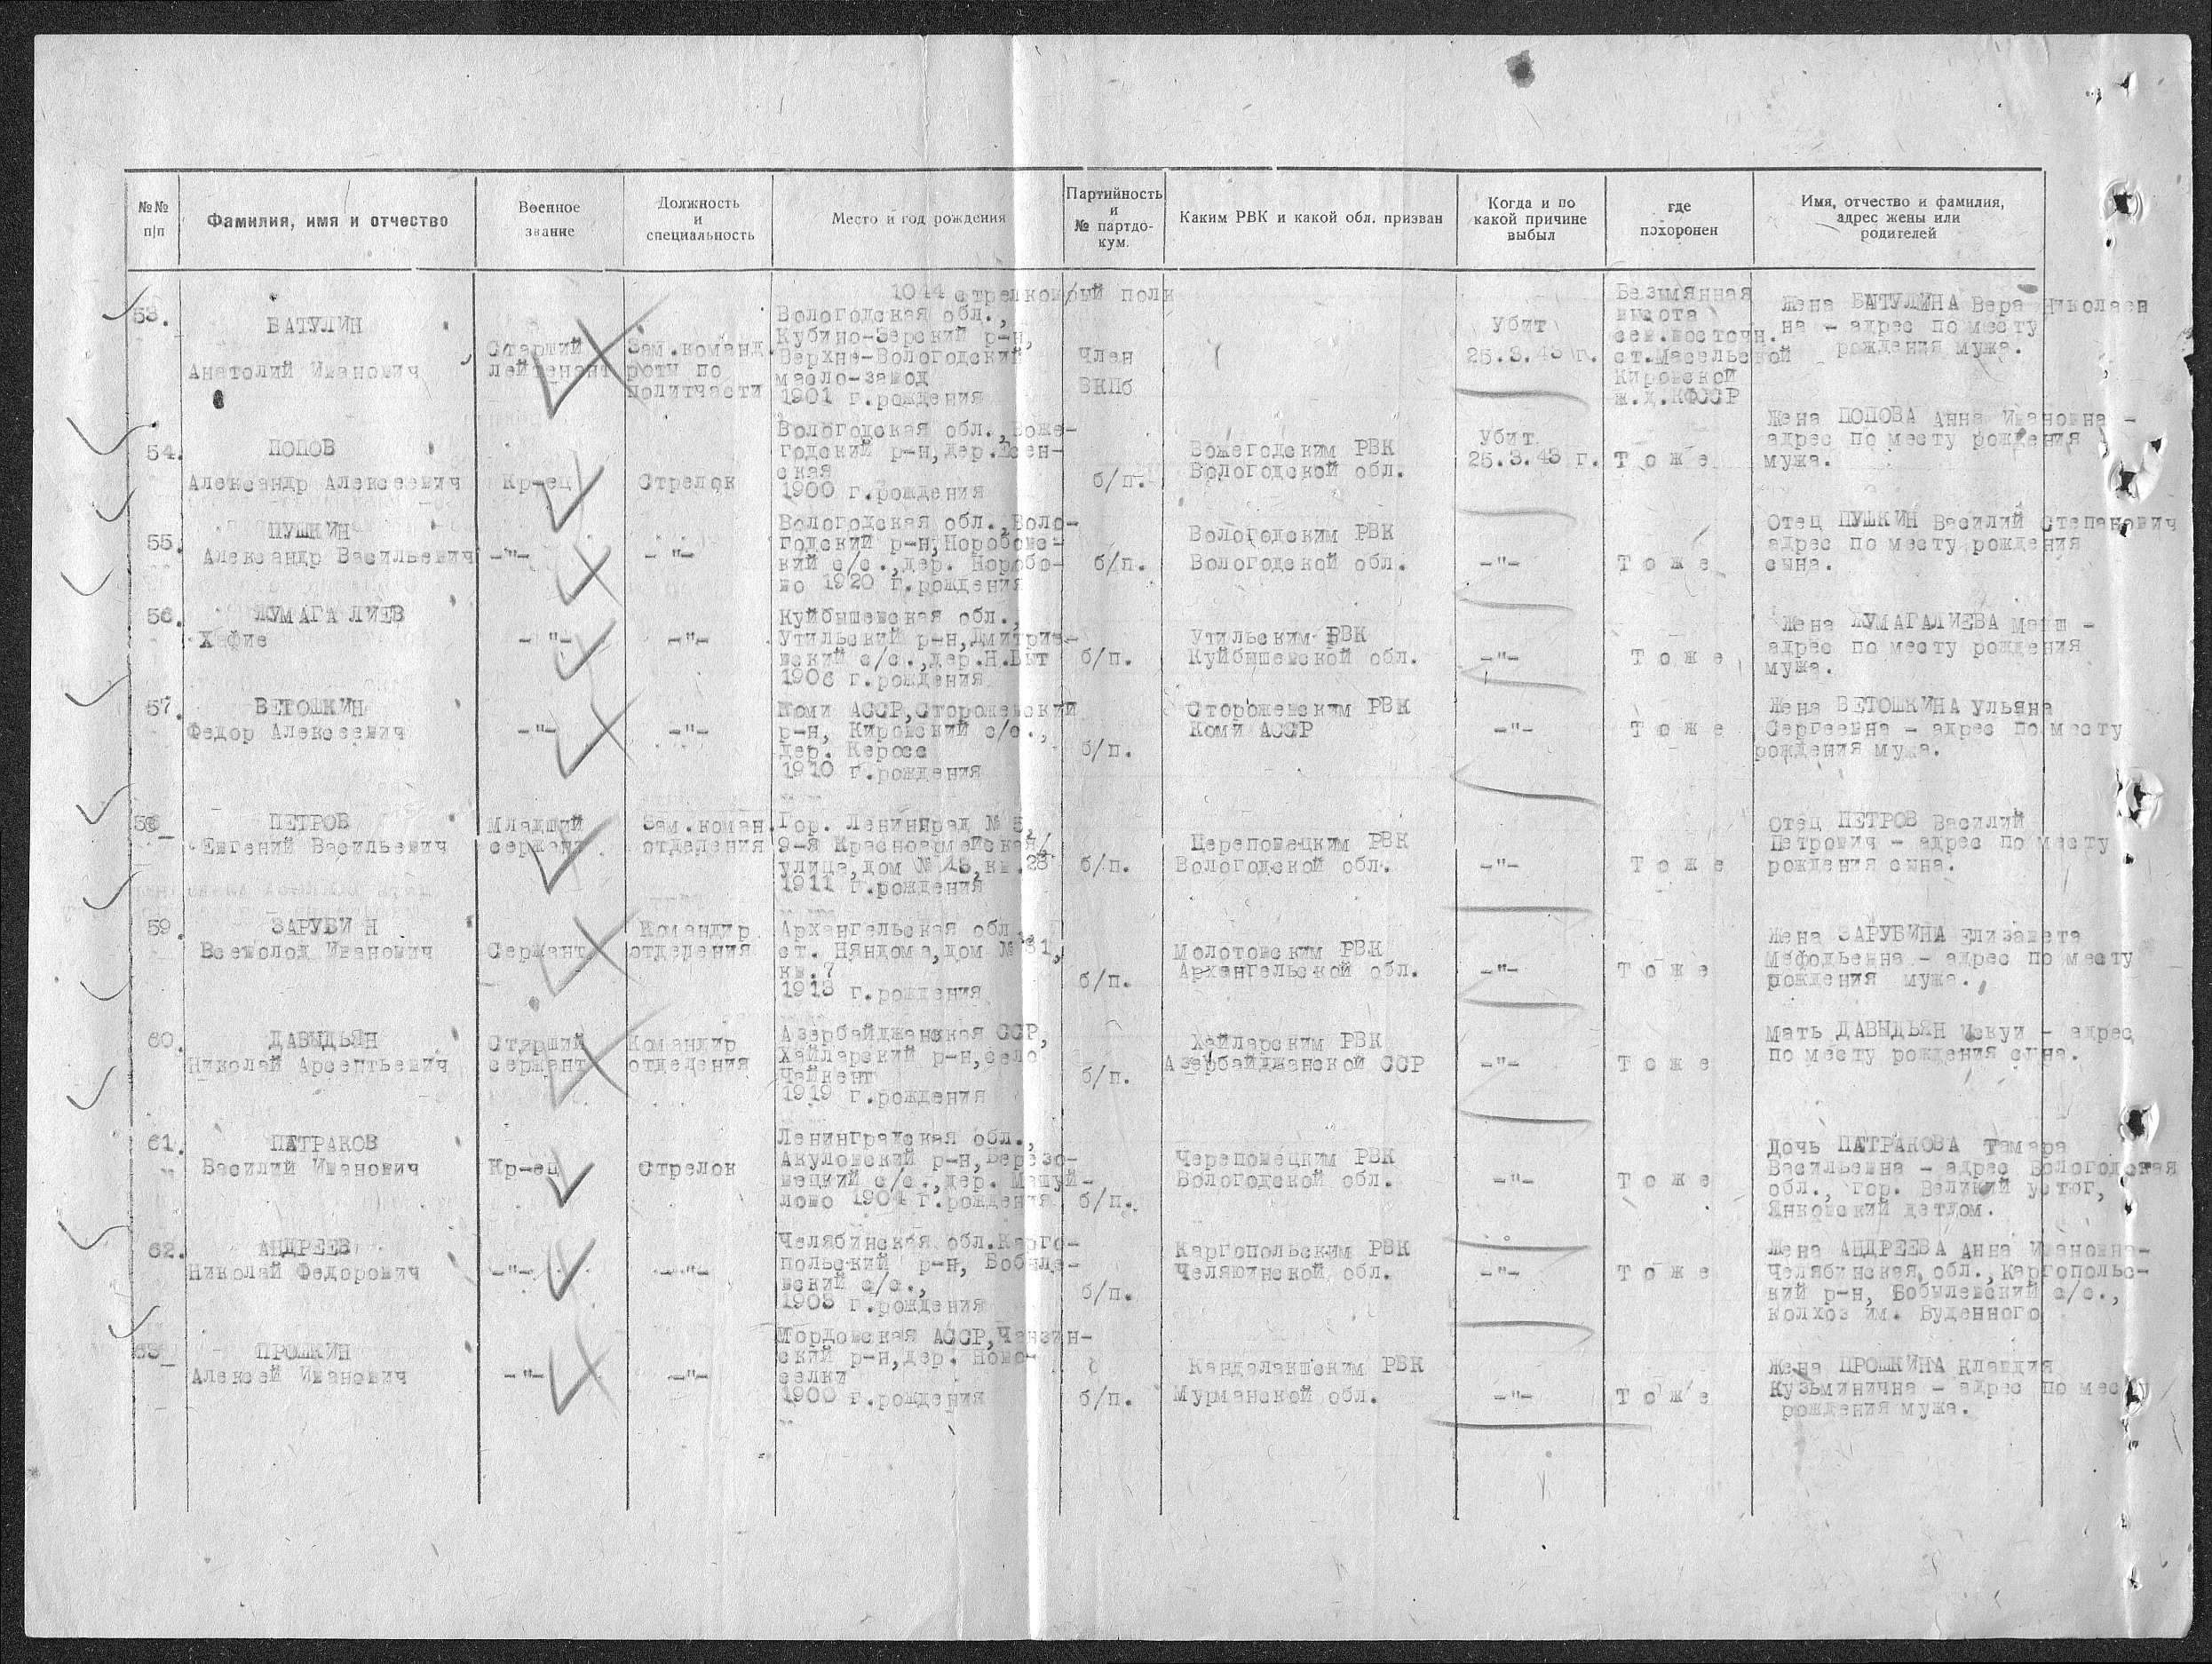 №№ п/п
Фамилия, имя и отчество
Военное звание
Должность и специальность
Место и год рождения
Партийность и № партдокум.
Каким РВК и какой обл. призван
Когда и по какой причине выбыл
где похоронен
Имя, отчество и фамилия, адрес жены или родителей
1044 стрелковый полк
53.
ВАТУЛИН
Анатолий Иванович
Старший
лейтенант
Зам.команд.
роты по
политчасти
Вологодская обл.,
Кубино-Зерский р-н,
Верхне-Вологодский
масло-завод
1901 г.рождения
Член
ВКПб
Убит
25.3.43 г.
Безымянная
высота
сев.восточн.
ст.Масельской
Кировской
ж.д.КФССР
Жена ВАТУЛИНА Вера Николаев
на - адрес по месту
рождения мужа.
54.
ПОПОВ
Александр Алексеевич
Кр-ец
Стрелок
Вологодская обл., Воже-
годский р-н, дер.Есен-
ская
1900 г.рождения
б/п.
Вожегодским РВК
Вологодской обл.
Убит
25.3.43 г.
Тоже
Жена ПОПОВА Анна Ивановна -
адрес по месту рождения
мужа.
55.
ПУШКИН
Александр Васильевич
-"-
-"-
Вологодская обл., Воло-
годский р-н, Норобовс-
кий с/с., дер. Норобо-
во 1920 г.рождения
б/п.
Вологодским РВК
Вологодской обл.
-"-
Тоже
Отец ПУШКИН Василий Степанович
адрес по месту рождения
сына.
56.
ЖУМАГАЛИЕВ
Хафие
-"-
-"-
Куйбышевская обл.,
Утильский р-н, Дмитрие-
вский с/с., дер.Н.Выт
1906 г.рождения
б/п.
Утильским РВК
Куйбышевской обл.
-"-
Тоже
Жена ЖУМАГАЛИЕВА -
адрес по месту рождения
мужа.
57.
ВЕТОШКИН
Федор Алексеевич
-"-
-"-
Коми АССР, Сторожевский
р-н, Кировский с/с.,
дер. Керосс
1910 г.рождения
б/п.
Сторожевским РВК
Коми АССР
-"-
Тоже
Жена ВЕТОШКИНА Ульяна
Сергеевна - адрес по месту
рождения мужа.
58
ПЕТРОВ
Евгений Васильевич
Младший
сержант
Зам.коман.
отделения
Гор. Ленинград № 5,
9-я Красноармейская
улица, дом № 13, кв.28
1911 г.рождения
б/п.
Череповецким РВК
Вологодской обл.
-"-
Тоже
Отец ПЕТРОВ Василий
Петрович - адрес по месту
рождения сына.
59.
ЗАРУБИН
Всеволод Иванович
Сержант
Командир
отделения
Архангельская обл.,
ст. Няндома, дом № 31,
кв.7
1913 г.рождения
б/п.
Молотовским РВК
Архангельской обл.
-"-
Тоже
Жена ЗАРУБИНА Елизавета
Мефодьевна - адрес по месту
рождения мужа.
60.
ДАВЫДЬЯН
Николай Арсентьевич
Старший
сержант
Командир
отделения
Азербайджанская ССР,
Хайларский р-н, село
Чайкент
1919 г.рождения
б/п.
Хайларским РВК
Азербайджанской ССР
-"-
Тоже
Мать ДАВЫДЬЯН Искуи - адрес
по месту рождения сына.
61.
ПАТРАКОВ
Василий Иванович
Кр-ец
Стрелок
Ленинградская обл.,
Акуловский р-н, Березо-
вецкий с/с., дер. Машуй-
лово 1904 г.рождения
б/п.
Череповецким РВК
Вологодской обл.
-"-
Тоже
Дочь ПАТРАКОВА Тамара
Васильевна - адрес Вологодская
обл., гор. Великий Устюг,
Янковский детдом.
62.
АНДРЕЕВ
Николай Федорович
-"-
-"-
Челябинская обл.Карго-
польский р-н, Бобыле-
вский с/с.,
1903 г.рождения
б/п.
Каргопольским РВК
Челябинской обл.
-"-
Тоже
Жена АНДРЕЕВА Анна Ивановна-
Челябинская обл., Каргопольс-
кий р-н, Бобылевский с/с.,
колхоз им. Буденного
63
ПРОШКИН
Алексей Иванович
-"-
-"-
Мордовская АССР, Чанзин-
ский р-н, дер. Ново-
селки
1900 г.рождения
б/п.
Кандалакшским РВК
Мурманской обл.
-"-
Тоже
Жена ПРОШКИНА Клавдия
Кузьминична - адрес по месту
рождения мужа.